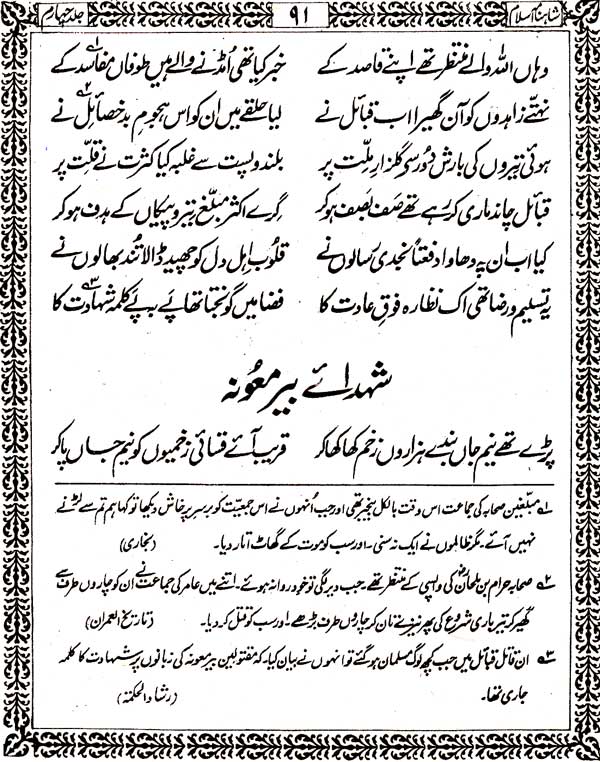 شاہنامۂ اسلام ۹۱ جلد چہارم
وہاں اللہ والے منتظر تھے اپنے قاصد کے خبر کیا تھی اُمڈنے والے ہیں طوفاں مفاسد کے ؂۱
نہتے زاہدوں کو آن گھیرا اب قبائل نے لیا حلقے میں ان کو اس ہجومِ بد خصائل نے ؂۲
ہوئی تیروں کی بارش دُور سی گلزارِ ملّت پر بلند و پست سے غلبہ کیا کثرت نے قلّت پر
قبائل چاند ماری کر رہے تھے صَف بَصَف ہو کر گرے اکثر مبلّغ تیر و پیکاں کے ہدف ہو کر
کیا اب ان پہ دھاوا دفعتاً نجدی رسالوں نے قلُوبِ اہلِ دل کو چھید ڈالا تُند بھالوں نے
یہ تسلیم و رضا تھی اک نظارہ فوقِ عادت کا فضا میں گونجتا تھا پے بہ پے کلمہ شہادت کا ؂۳
شہدائے بیر معُونہ
پڑے تھے نیم جاں بندے ہزاروں زخم کھا کھا کر قریب آئے قسائی زخمیوں کو نیم جاں پا کر
؂۱ مبلّغین صحابہ کی جماعت اس وقت بالکل بیخبر تھی اور جب اُنہوں نے اس جمعیت کو برسرِ پرخاش دیکھا تو کہا ہم تم سے لڑنے
نہیں آئے۔ مگر ظالموں نے ایک نہ سنی۔ اور سب کو موت کے گھاٹ اتار دیا۔ (بخاری)
؂۲ صحابہ حرام بن ملحانؓ کی واپسی کے منتظر تھے۔ جب دیر لگی تو خود روانہ ہوئے۔ اتنے میں عامر کی جماعت نے ان کو چاروں طرف سے
گھیر کر تیر باری شروع کی پھر نیزے تان کر چاروں طرف بڑھے۔ اور سب کو قتل کر دیا۔ (تاریخ العمران)
؂۳ ان قاتل قبائل میں جب کچھ لوگ مسلمان ہو گئے تو انہوں نے بیان کیا۔ کہ مقتولین بیر معونہ کی زبانوں پر شہادت کا کلمہ
جاری تھا۔ (رشاد الحکمۃ)